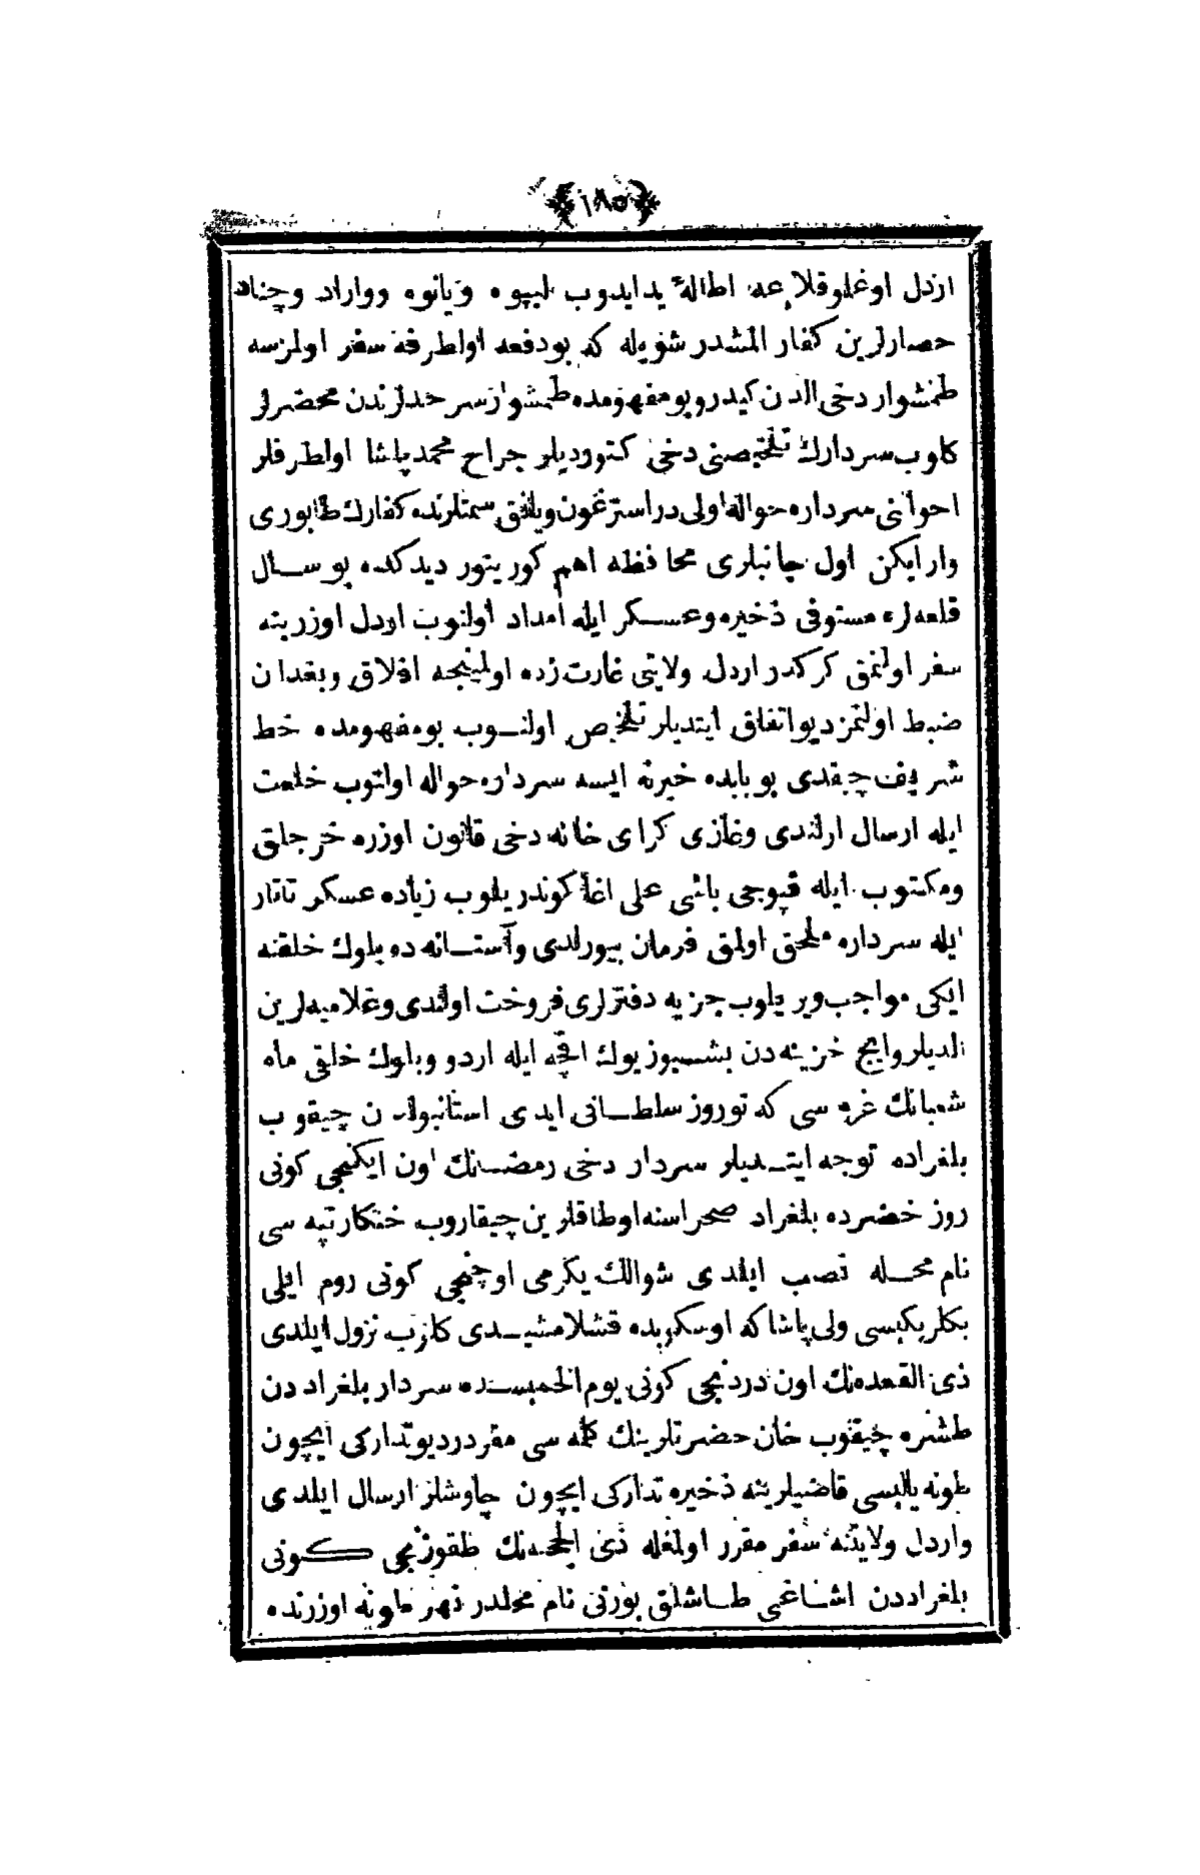 ﴿١٨٥﴾
اردل اوغلو قلاعه اطالهٔ ید ایدوب لیپوه ویانوه وواراد وچناد
حصارلرین كفار المشدر شویله كه بودفعه اولطرفه سفر اولمزسه
طمشوار دخی الدن كیدر وبو مفهومده طمشوار سرحدلرندن محضرلر
كلوب سردارك تلخیصنی دخی كتوردیلر جراح محمد پاشا اولطرفلر
احوالنی سرداره حواله اولی در استرغون وپلنق سمتلرنده كفارك طابوری
وار ایكن اول جانبلری محافظه اهم كورینور دیدكده بو سال
قلعه لره مستوفی ذخیره وعسكر ایله امداد اولنوب اردل اوزرینه
سفر اولنمق كركدر اردل ولایتی غارت زده اولمینجه افلاق وبغدان
ضبط اولنمز دیو اتفاق ایتدیلر تلخیص اولنوب بو مفهومده خط
شریف چیقدی بو بابده خیرنه ایسه سرداره حواله اولنوب خلعت
ایله ارسال اولندی وغازی كرای خانه دخی قانون اوزره خرجلق
ومكتوب ایله قپوجی باشی علی اغا كوندریلوب زیاده عسكر تاتار
ایله سرداره ملحق اولمق فرمان بیورلدی وآستانه ده بلوك خلقنه
ایكی مواجب ویریلوب جزیه دفترلری فروخت اولندی وغلامیه لرین
الدیلر وایچ خزینه دن بشیوز یوك اقچه ایله اردو وبلوك خلقی ماه
شعبانك غره سی كه نوروز سلطانی ایدی استانبولدن چیقوب
بلغراده توجه ایتدیلر سردار دخی رمضانك اون ایكنجی كونی
روز خضرده بلغراد صحراسنه اوطاقلرین چیقاروب خنكار تپه سی
نام محله نصب ایلدی شوالك یكرمی اوچنجی كونی روم ایلی
بكلربكیسی ولی پاشا كه اوسكوبده قشلامشیدی كلوب نزول ایلدی
ذی القعده نك اون دردنجی كونی یوم الخمیسده سردار بلغراددن
طشره چیقوب خان حضرتلرینك كلمه سی مقرردر دیو تداركی ایچون
طونه یالیسی قاضیلرینه ذخیره تداركی ایچون چاوشلر ارسال ایلدی
واردل ولایتنه سفر مقرر اولمغله ذی الحجه نك طقوزنجی كونی
بلغراددن اشاغی طاشلق بورنی نام محلدر نهر طونه اوزرنده